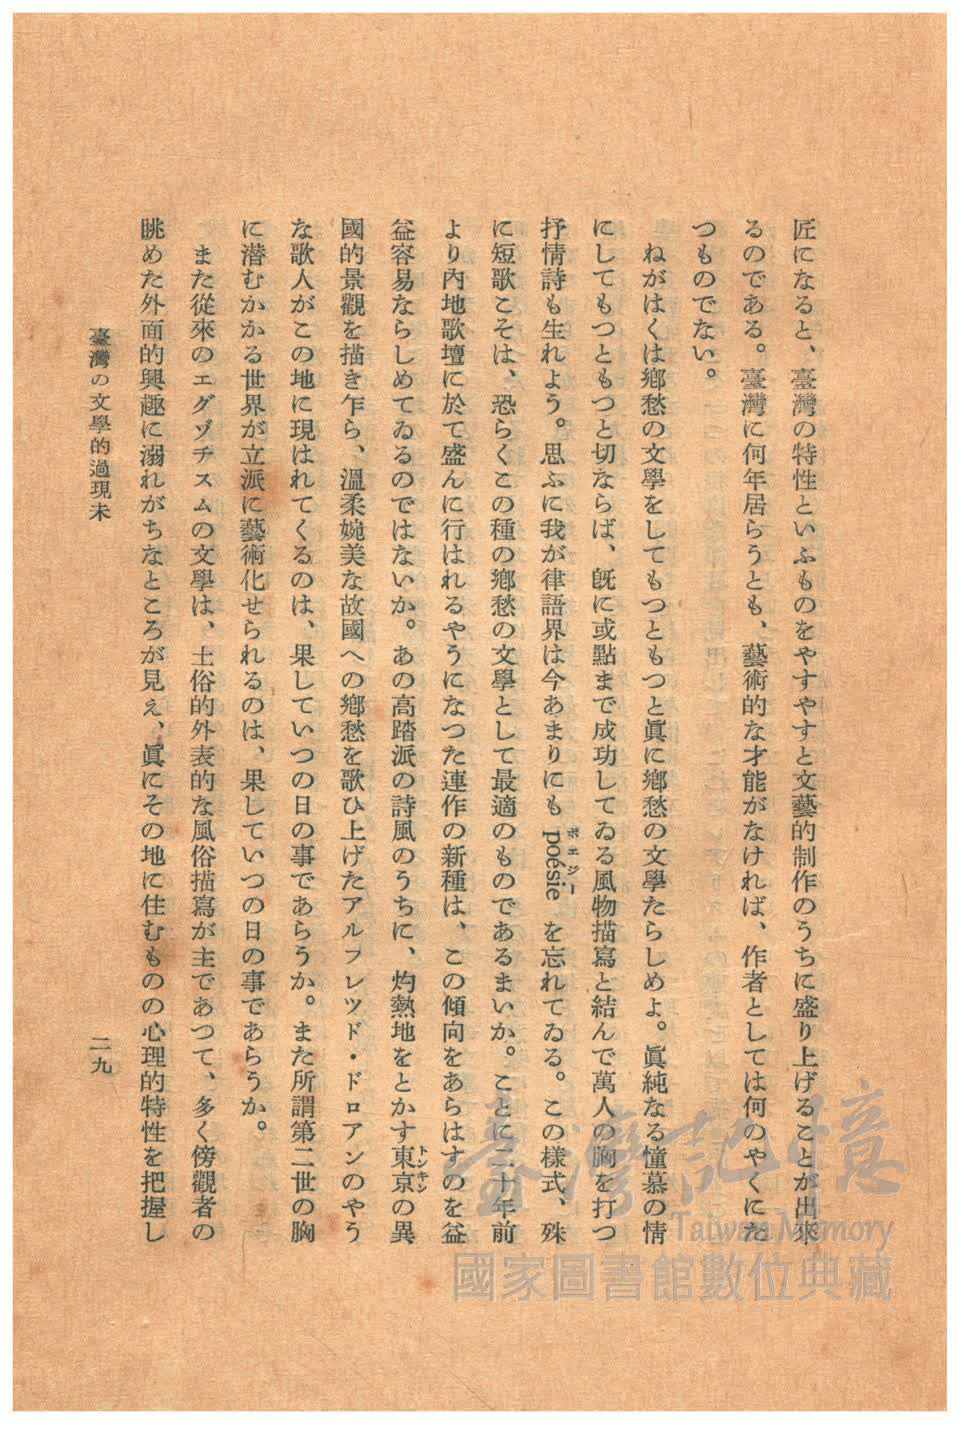 匠になると、臺灣の特性といふものをやすやすと文藝的制作のうちに盛り上げることが出來
るのである。臺灣に何年居らうとも、藝術的な才能がなければ、作者としては何のやくにた
つものでない。
ねがはくは鄕愁の文學をしてもつともつと眞に鄕愁の文學たらしめよ。眞純なる憧慕の情
にしてもつともつと切ならば、旣に或點まで成功してゐる風物描寫と結んで萬人の胸を打つ
抒情詩も生れよう。思ふに我が律語界は今あまりにも poésie を忘れてゐる。この樣式、殊
ポエジー
に短歌こそは、恐らくこの種の鄕愁の文學として最適のものであるまいか。ことに二十年前
より內地歌壇に於て盛んに行はれるやうになつた連作の新種は、この傾向をあらはすのを益
益容易ならしめてゐるのではないか。あの高踏派の詩風のうちに、灼熱地をとかす東京の異
トンキン
國的景觀を描き乍ら、溫柔婉美な故國への鄕愁を歌ひ上げたアルフレツド・ドロアンのやう
な歌人がこの地に現はれてくるのは、果していつの日の事であらうか。また所謂第二世の胸
に潛むかかる世界が立派に藝術化せられるのは、果していつの日の事であらうか。
また從來のエグゾチスムの文學は、土俗的外表的な風俗描寫が主であつて、多く傍觀者の
眺めた外面的興趣に溺れがちなところが見え、眞にその地に住むものの心理的特性を把握し
臺灣の文學的過現未
二九
臺灣記憶
Taiwan Memory
國家圖書館數位典藏